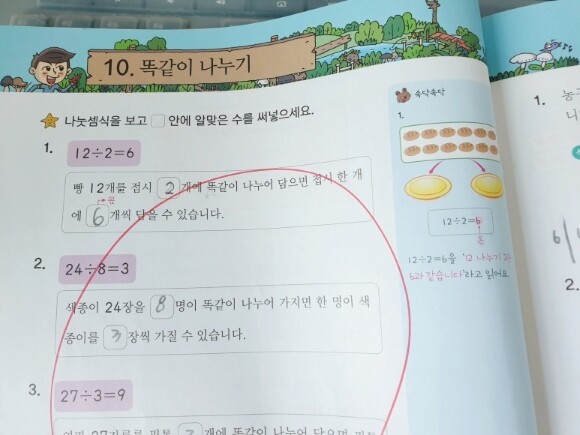 10. 똑같이 나누기
나눗셈식을 보고 □ 안에 알맞은 수를 써넣으세요.
1.
12÷2=6
빵 12개를 접시 2 개에 똑같이 나누어 담으면 접시 한 개
몫
에 6 개씩 담을 수 있습니다.
2.
24÷8=3
색종이 24장을 8 명이 똑같이 나누어 가지면 한 명이 색
종이를 3 장씩 가질 수 있습니다.
3.
27÷3=9
27자루를 필통 3 개에 똑같이 나누어 담으면
속닥속닥
1.
12÷2=6
몫
12÷2=6을 '12 나누기 2는
6과 같습니다'라고 읽어요.
1.
2.